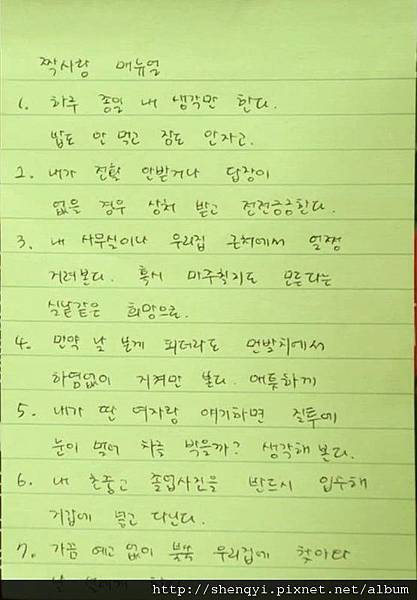 짝사랑 매뉴얼
1. 하루 종일 내 생각만 한다.
밥도 안 먹고 잠도 안자고.
2. 내가 전활 안받거나 답장이
없을 경우 상처 받고 전전긍긍한다.
3. 내 사무실이나 우리집 근처에서 얼쩡
거려본다. 혹시 마주칠지도 모른다는
실낱같은 희망으로.
4. 만약 날 보게 되더라도 먼발치에서
하염없이 지켜만 본다. 애틋하게
5. 내가 딴 여자랑 얘기하면 질투에
눈이 멀어 차를 박을까? 생각해 본다.
6. 내 초중고 졸업사진을 반드시 입수해
지갑에 넣고 다닌다.
7. 가끔 예고 없이 불쑥 우리집에 찾아와
http://shenqyi.pixnet.net/album